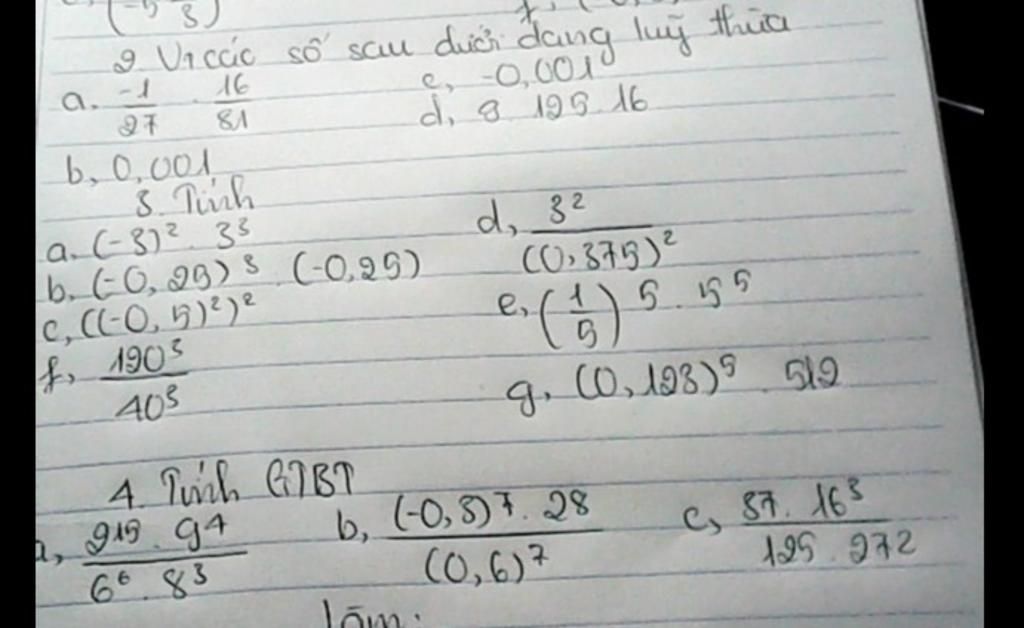 2. Vt các số sau dưới dạng luỹ thừa
a. -1/27 . 16/81 c, -0,001
d, 8 125 16
b, 0,001
3. Tính
a. (-3)² . 3³ d, 3²/(0,375)²
b. (-0,25)³ . (-0,25)
c, ((-0,5)²)² e, (1/5)⁵ . 5⁵
f, 120³/40³ g, (0,123)⁵ . 512
4. Tính GTBT
a, 2¹⁵ . 9⁴/6⁶ . 8³ b, (-0,3)⁷ . 28/(0,6)⁷ c, 37 . 16³/125 . 27²
làm: